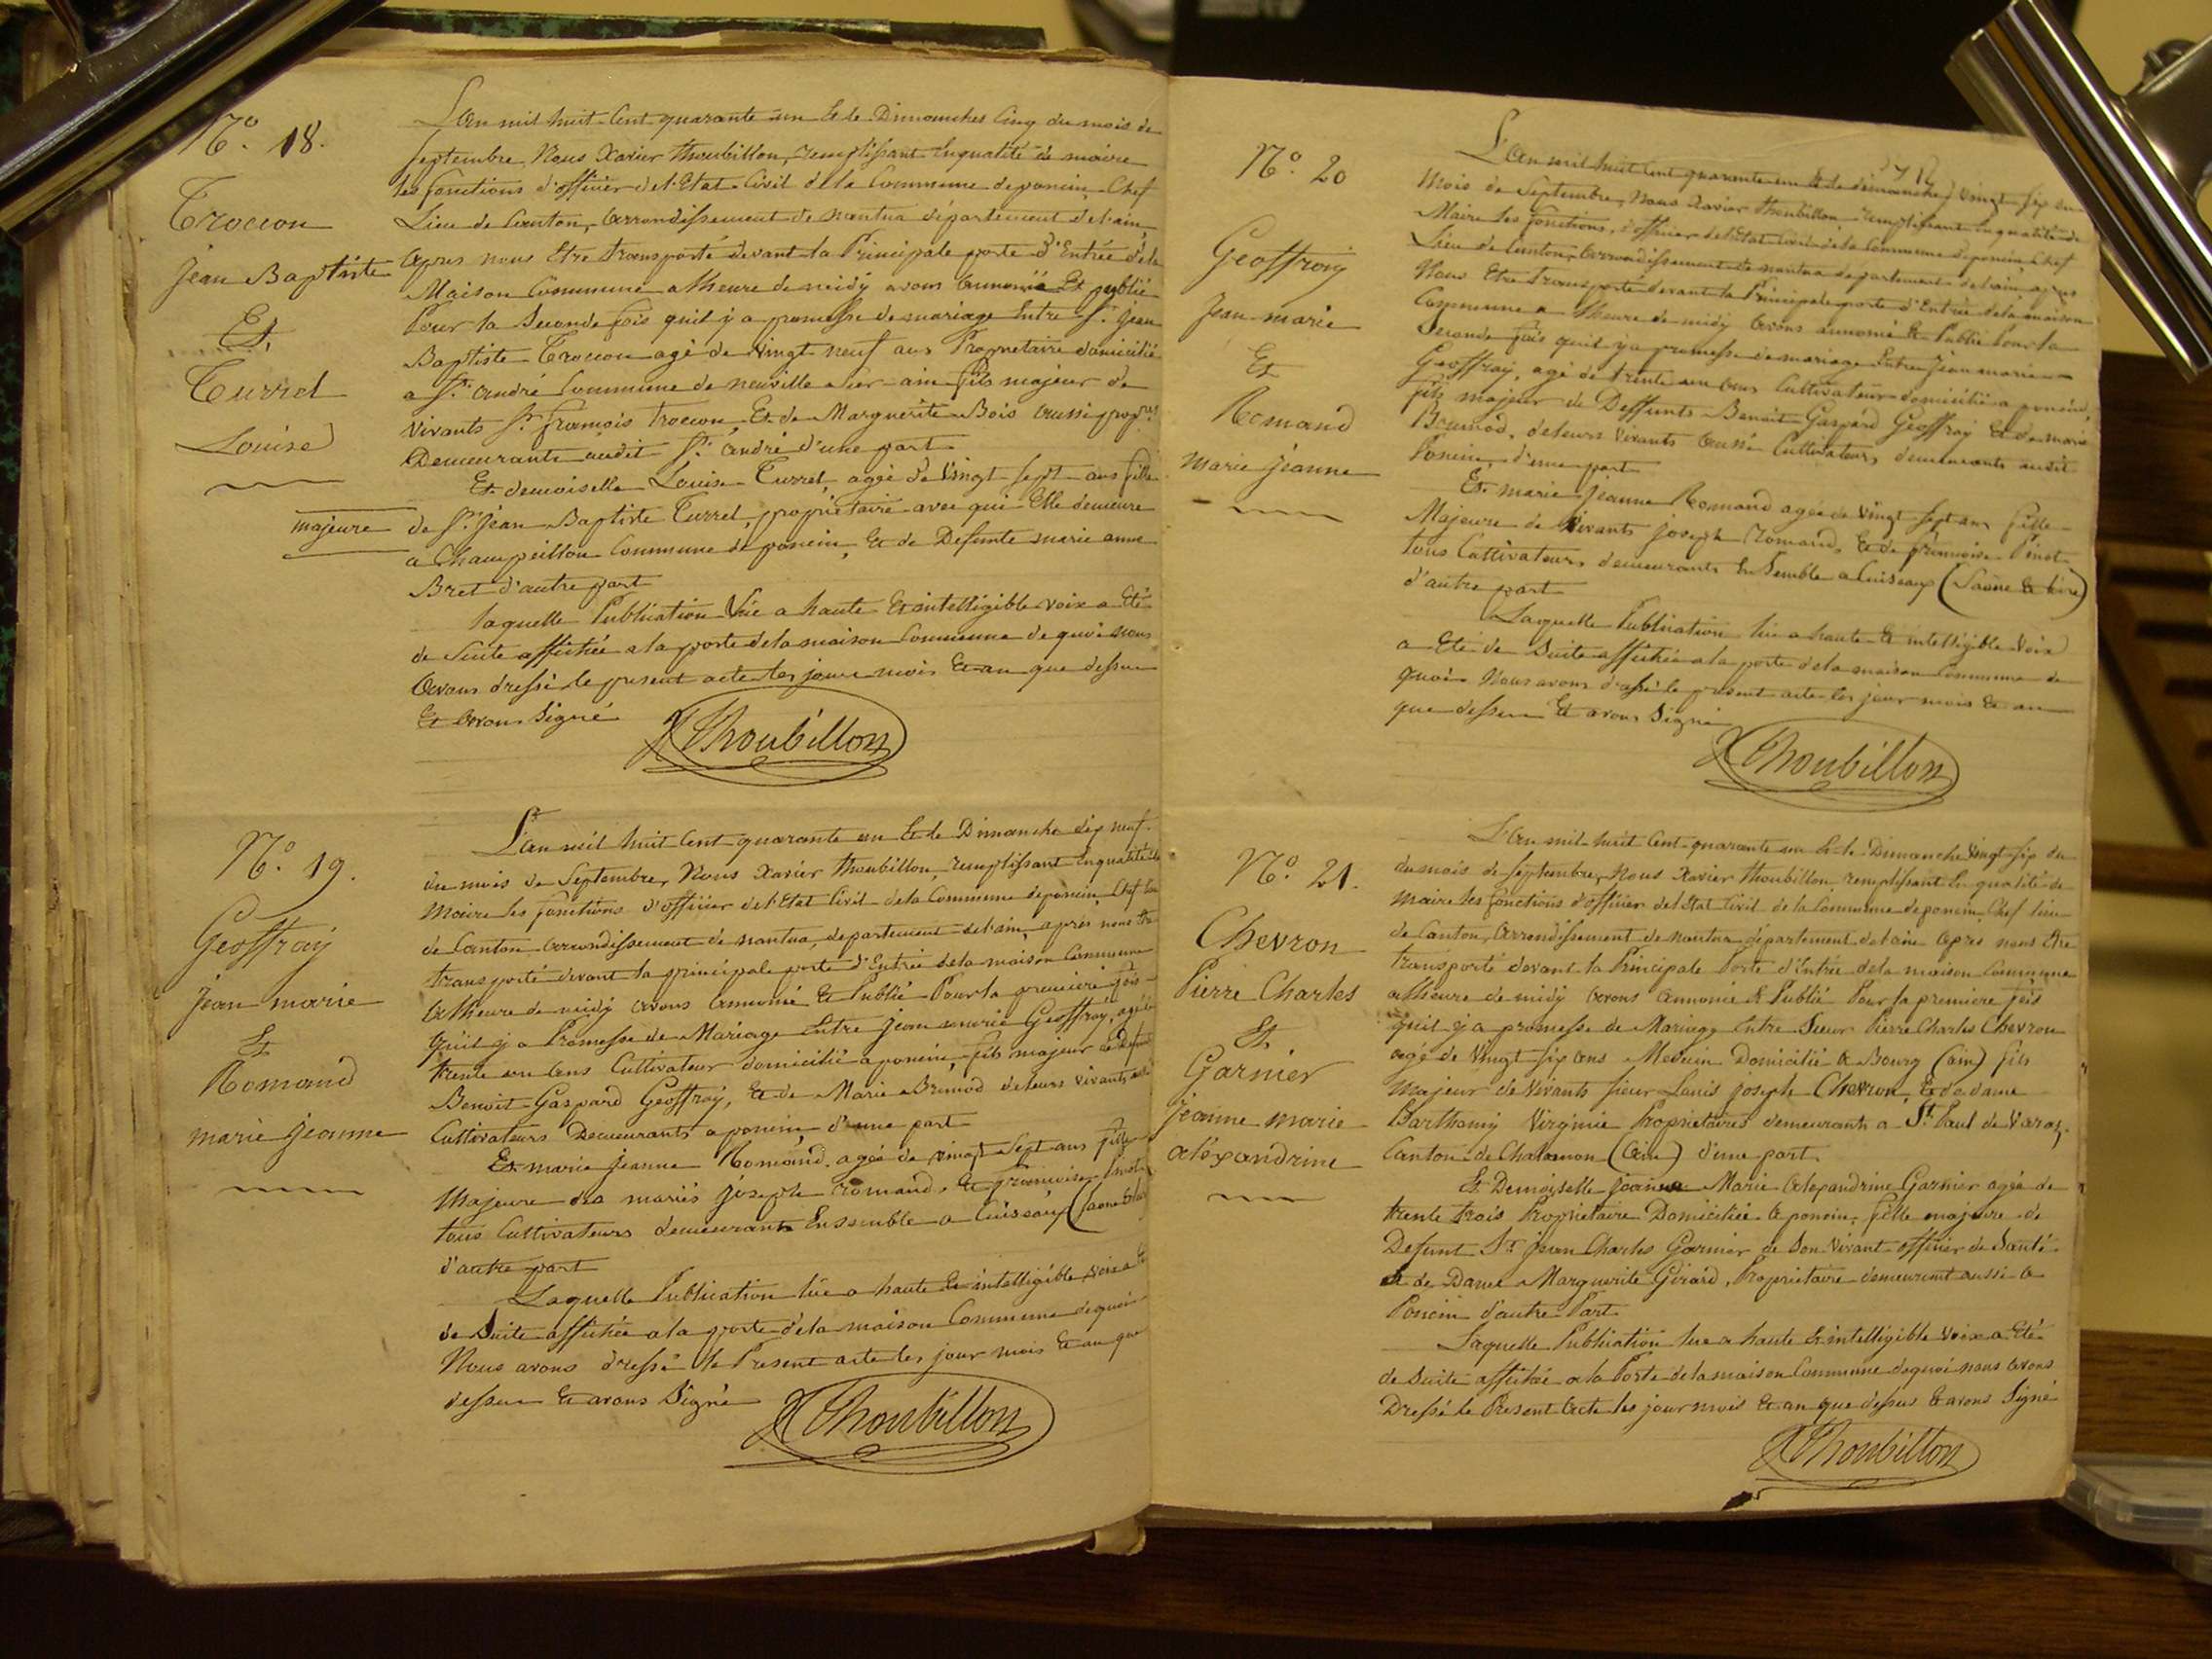 N.º 18.
Trocon
Jean Baptiste
Et
Turrel
Louise
majeure
L'an mil huit Cent quarante un Et le Dimanches Cinq du mois de
Septembre, Nous Xavier Thoubillon, remplissant Enqualité de maire
les fonctions d'officier del'Etat Civil dela Commune deponcin Chef
Lieu de Canton, arrondissement de nantua département delain,
apres nous Etre transporté devant la Principale porte d'Entrée dela
Maison Commune a lheure de midy avons annoncé Et publié
Pour la Seconde fois quil y a promesse de mariage Entre Sr. Jean
Baptiste Trocon agé de Vingt neuf ans Propriétaire domicilié
a St. andré Commune de neuville sur ain fils majeur de
vivants Sr. françois Trocon, Et de Marguerite Bois aussi propres
Demeurants audit St. andré d'une part
Et demoiselle Louise Turrel, agée de Vingt Sept ans fille
de Sr. Jean Baptiste Turrel, propriétaire avec qui Elle demeure
a Champeillon Commune de poncin, Et de Defunte marie anne
Bret d'autre part
laquelle Publication lüe a haute Et intelligible voix a Eté
de Suite affichée a la porte dela maison Commune de quoi nous
avons dressé le present acte les jour mois Et an que dessus
Et avons Signé
X Thoubillon
N.º 19.
Geoffray
Jean marie
Et
Romand
marie jeanne
L'an mil huit Cent quarante un Et le Dimanche dix neuf
du mois de Septembre, Nous Xavier Thoubillon, remplissant Enqualité de
Maire les fonctions d'officier del'Etat Civil dela Commune deponcin, Chef lieu
de Canton arrondissement de nantua, departement delain, après nous Etre
transporté devant la principale porte d'Entrée dela maison Commune
a lheure de midy avons annoncé Et Publié Pour la première fois
qu'il y a Promesse de Mariage Entre Jean marie Geoffray, agé de
trente un ans Cultivateur domicilié a poncin fils majeur de Defunts
Benoit Gaspard Geoffray, Et de Marie Brunod deleurs vivants aussi
Cultivateurs Demeurants a poncin, d'une part
Et marie jeanne Romand, agée de vingt Sept ans fille
Majeure des mariés joseph romand, Et françoise Pinot
tous Cultivateurs demeurants Ensemble a Cuiseaux (Saone Et loire)
d'autre part
Laquelle Publication lüe a haute Et intelligible voix a Eté
de Suite affichée a la porte dela maison Commune dequoi
Nous avons dressé le Present acte les jour mois Et an que
dessus Et avons Signé
X Thoubillon
N.º 20
Geoffray
Jean marie
Et
Romand
marie jeanne
L'an mil huit Cent quarante un Et le dimanche Vingt Six du
Mois de Septembre, Nous Xavier Thoubillon, remplissant enqualité de
Maire les fonctions, d'officier del'Etat Civil dela Commune deponcin Chef
Lieu de Canton, arrondissement de nantua departement delain, après
Nous Etre transporté devant la Principale porte d'Entrée dela maison
Commune a lheure de midy avons annoncé Et Publié Pour la
Seconde fois quil y a promesse de mariage Entre Jean marie
Geoffray, agé de trente un ans Cultivateur domicilié a poncin,
fils majeur de Deffunts Benoit Gaspard Geoffray Et de marie
Brunod, deleurs Vivants aussi Cultivateurs demeurants audit
Poncin, d'une part
Et marie jeanne Romand agée de Vingt Sept ans fille
Majeure de Vivants joseph romand, Et de françoise Pinot
tous Cultivateurs demeurants Ensemble a Cuiseaux (Saône Et loire)
d'autre part
Laquelle Publication lüe a haute Et intelligible voix
a Eté de Suite affichée a la porte dela maison Commune de
quoi Nous avons dressé le présent acte les jour mois Et an
que dessus Et avons Signé
X Thoubillon
N.º 21.
Chevron
Pierre Charles
Et
Garnier
jeanne marie
aléxandrine
L'an mil huit Cent quarante un Et le Dimanche Vingt Six du
dumois de Septembre, Nous Xavier Thoubillon, remplissant En qualité de
maire les fonctions d'officier del'Etat Civil de la Commune deponcin, Chef lieu
de Canton, arrondissement de nantua département delain après nous Etre
transporté devant la Principale Porte d'Entrée dela maison Commune
a lheure de midy avons annoncé Et Publié Pour la première fois
quil y a promesse de Mariage Entre Sieur Pierre Charles Chevron
agé de Vingt Six ans Medecin Domicilié a Bourg (ain) fils
majeur de Vivants Sieur Louis joseph Chevron, Et de dame
Barthomy Virginie Proprietaires demeurants a St. Paul de Varax,
Canton de Chalamon (ain) d'une part.
Et Demoiselle jeanne Marie Alexandrine Garnier agée de
trente trois Proprietaire Domiciliée a poncin, fille majeure de
Defunt Sr. jean Charles Garnier de Son Vivant officier de Santé
Et de Dame Marguerite Girard, Propriétaire demeurant aussi a
Poncin d'autre Part.
Laquelle Publication lue a haute Et intelligible voix a Eté
de Suite affichée a la Porte dela maison Commune dequoi nous avons
Dressé le Présent acte les jour mois Et an que dessus Et avons Signé
X Thoubillon